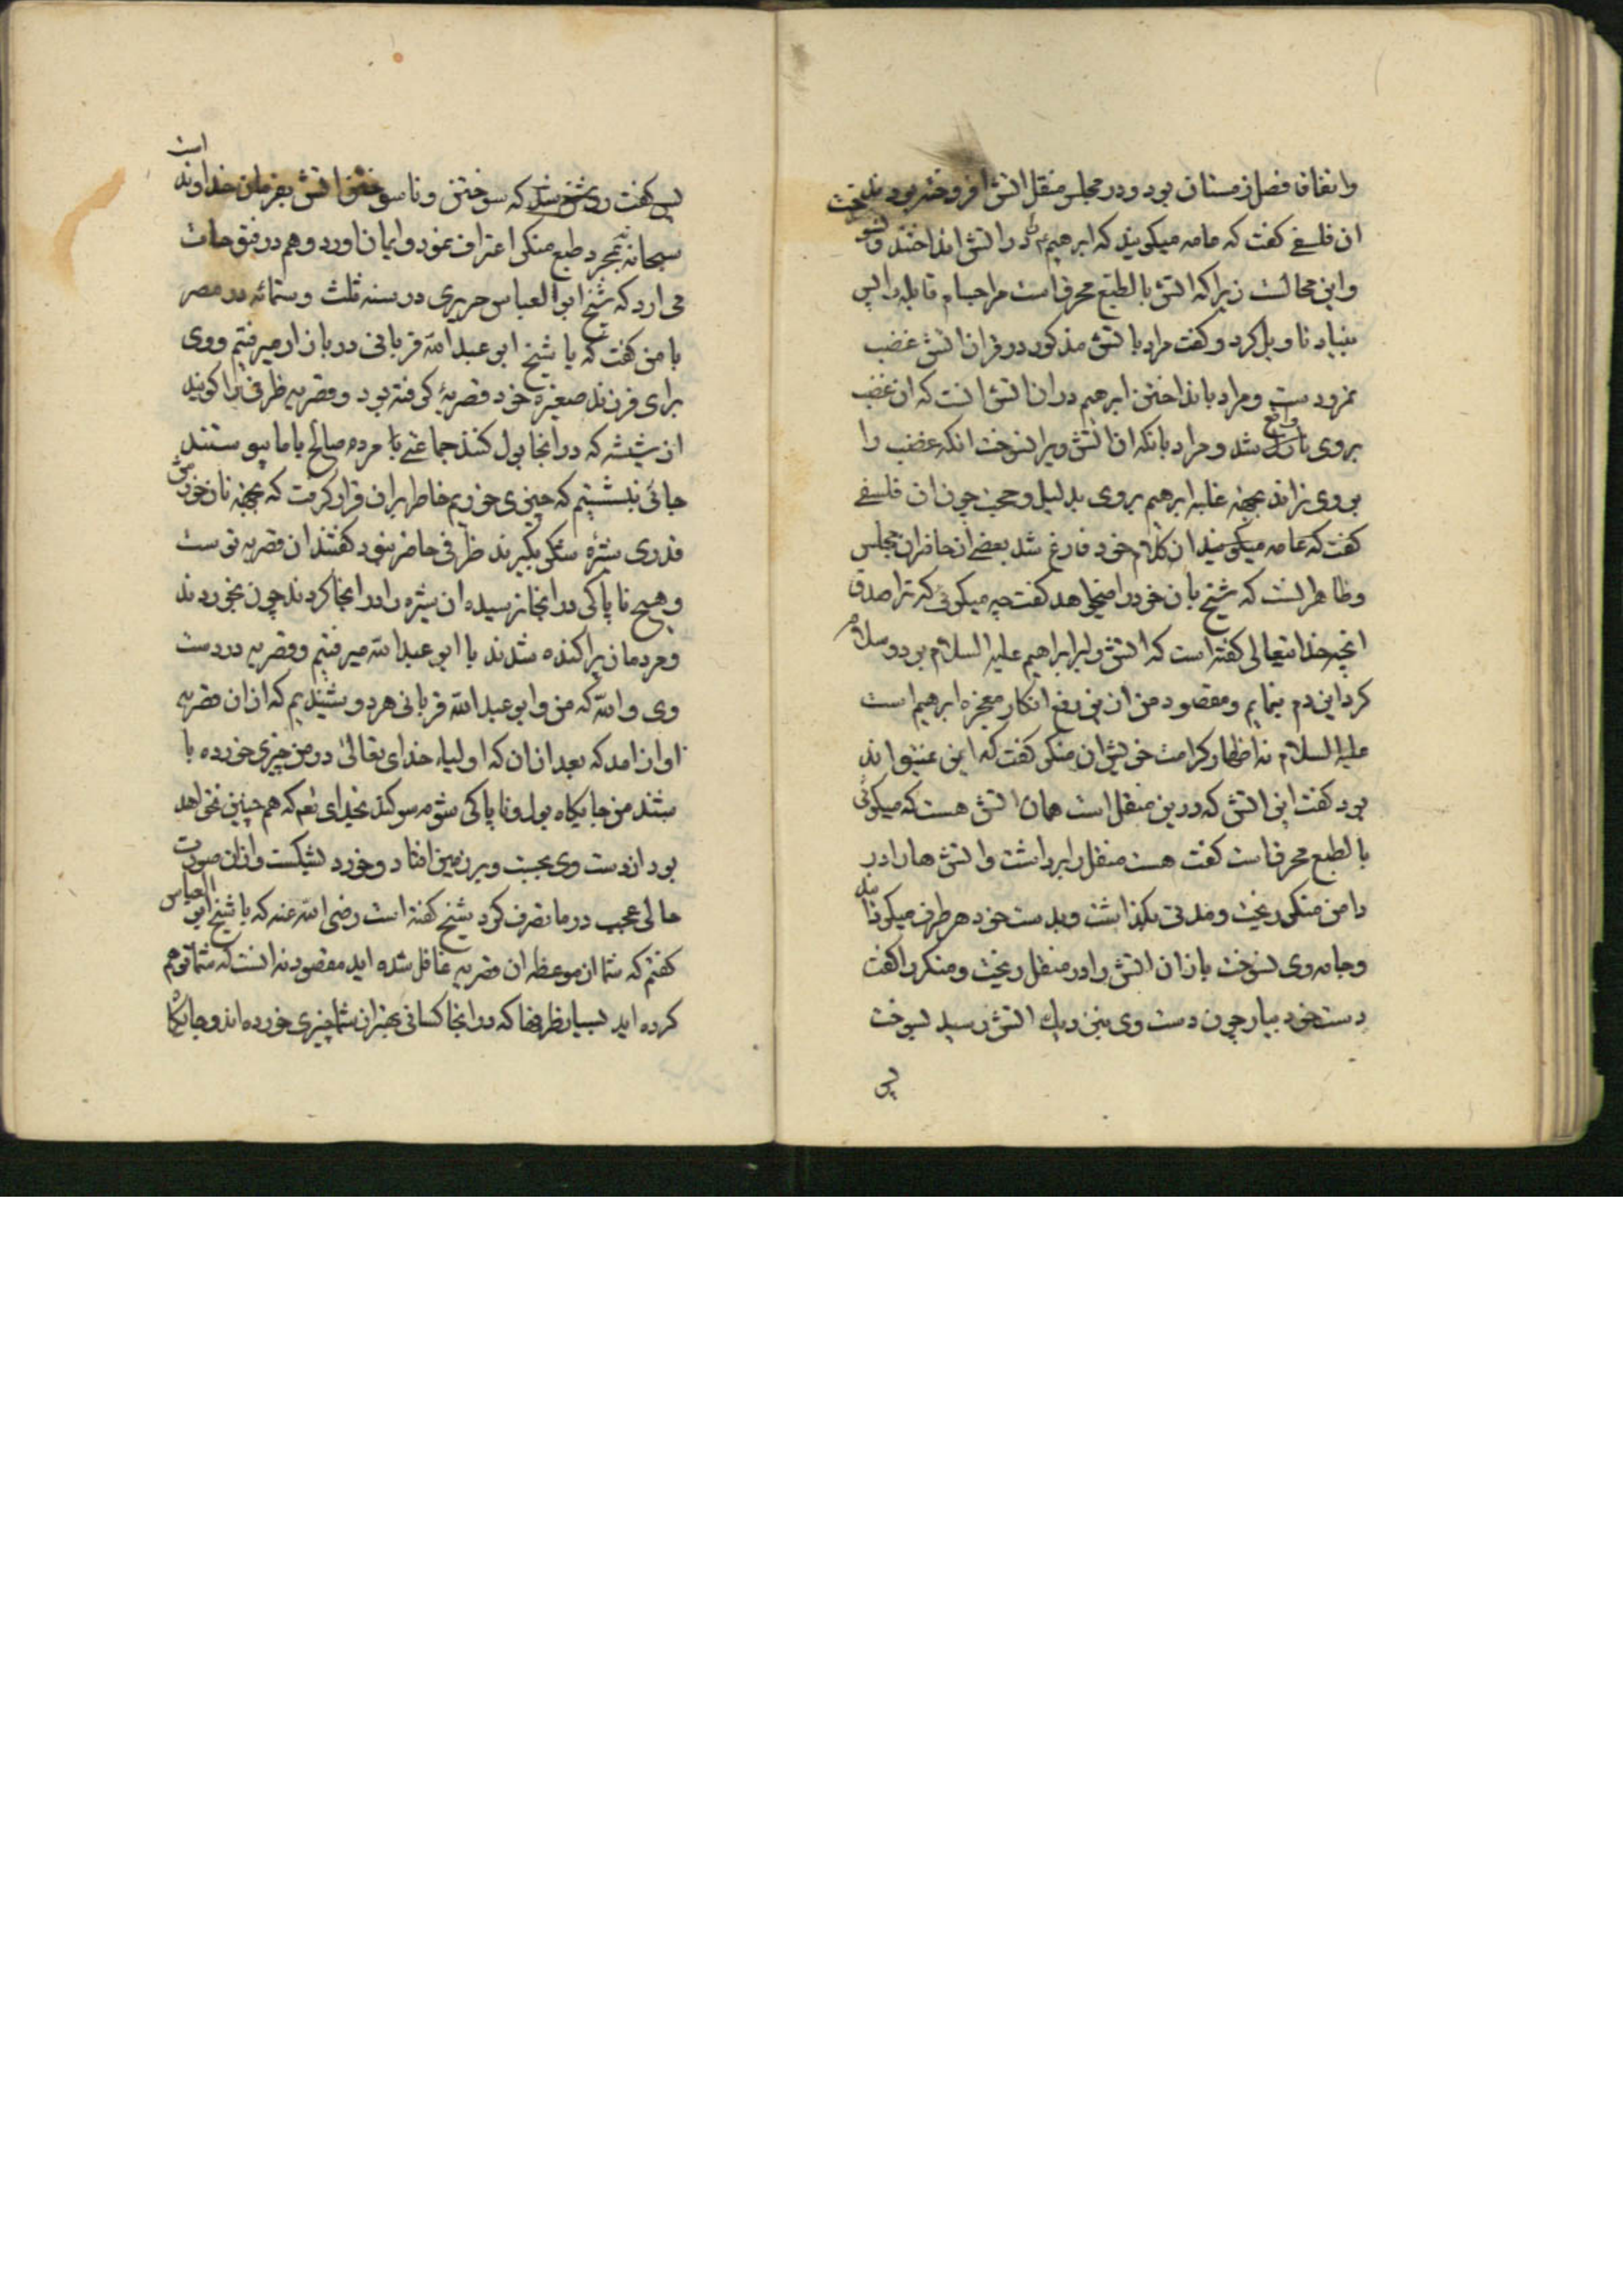 واتفاقا فصل زمستان بود و در مجلس منقل اتش افروخته بودند بحث
ان فلسفی کفت که عامه میکویند که ابرهیم ع م را در اتش انداختند و نسوخت
و این محالست زیرا که اتش بالطبع محرقست مر اجسام قابله را پس
بنیاد تاویل کرد و کفت مراد باتش مذکور در قران اتش غضب
نمرودست و مراد بانداختن ابرهیم دران اتش انست که ان غضب
بروی واقع شد و مراد بانکه ان اتش ویرا نسوخت انکه غضب را
بروی نراند بجهة غلبه ابرهیم بروی بدلیل و حجت چون ان فلسفی
کفت که عامه میکویند از کلام خود فارغ شد بعضی از حاضران مجلس
و ظاهر انست که شیخ بان خود را میخواهد کفت چه میکوئی که ترا صدق
انچه خدایتعالی کفته است که اتش را بر ابراهیم علیه السلام برد و سلام
کردانیدم بنمایم و مقصود من ازین رفع انکار معجزه ابرهیم است
علیه السلام نه اظهار کرامت خویش ان منکر کفت که این نمیتواند
بود کفت این اتش که درین منقل است همان اتش هست که میکوئی
بالطبع محرقست کفت هست منقل را برداشت و اتش ها را در
دامن منکر ریخت و مدتی بکذاشت و بدست خود هر طرف میکردانید
و جامه وی نسوخت باز ان اتش را در منقل ریخت و منکر را کفت
دست خود بیار چون دست وی بنزدیک اتش رسید بسوخت
پس
پس کفت روشن شد که سوختن و ناسوختن اتش بفرمان خداوند است
سبحانه نه بمجرد طبع منکر اعتراف نمود و ایمان اورد و هم در فتوحات
می ارد که شیخ ابوالعباس حریری در سنه ثلث و ستمائه در مصر
با من کفت که با شیخ ابو عبدالله قربانی در بازار میرفتیم و وی
برای فرزند صغیره خود قصریهٔ کرفته بود و قصریه ظرفی را کویند
از شیشه که درانجا بول کنند جماعتی با مردم صالح با ما پیوستند
جائی بنشستیم که چیزی خوریم خاطر بران قرار کرفت که بجهة نان خورش
قدری شیرهٔ شکر بکیرند ظرفی حاضر نبود کفتند ان قصریه نو است
و هیچ ناپاکی درانجا نرسیده ان شیره را درانجا کردند چون بخوردند
و مردمان پراکنده شدند با ابو عبدالله میرفتیم و قصریه در دست
وی والله که من و ابو عبدالله قربانی هر دو شنیدیم که از ان قصریه
اواز امد که بعد ازان که اولیاء خدای تعالی در من چیزی خورده با
شند من جایکاه بول و ناپاکی شوم سوکند بخدای تعم که هم چنین نخواهد
بود از دست وی بجست و بر زمین افتاد و خورد بشکست و ازان صورت
حالی عجب در ما تصرف کرد شیخ کفته است رضی الله عنه که با شیخ ابو العباس
کفتم که شما از موعظه ان قصریه غافل شده اید مقصود نه انست که شما توهم
کرده اید بسیار ظرفها که درانجا کسانی بهتر از شما چیزی خورده اند و جایکاه